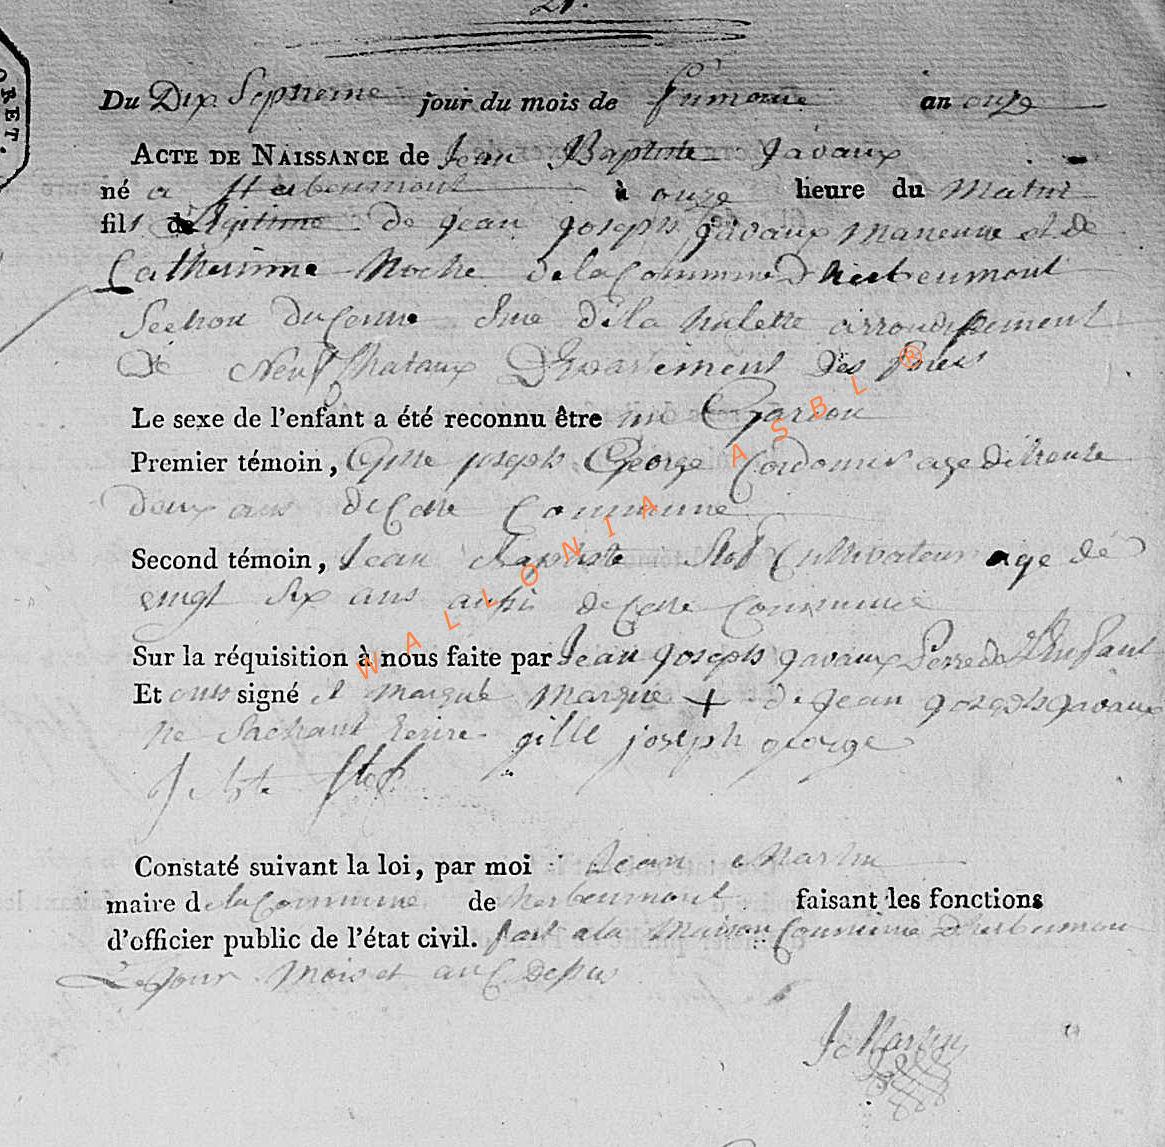 21.
ORET.
Du Dix Septieme jour du mois de frimaire an onze
ACTE DE NAISSANCE de Jean Baptiste Javaux
né a Herbeumont à onze heure du Matin
fils de legitime de jean joseph javaux Maneuvre et de
Catherinne Noche de la Commune dherbeumont
Section de la arrondissement
De Neufchataux Departement des
Le sexe de l'enfant a été reconnu être un Garson
Premier témoin, Gille joseph George Cordonnier age de trente
deux ans de Cette Commune
Second témoin, Jean Baptiste Stof Cultivateur age de
vingt Six ans ausi de Cette Commune
Sur la réquisition à nous faite par Jean joseph javaux Perre de L'Enfant
Et ont signé et marqué Marque + de jean joseph javaux
Ne Sachant Ecrire gille joseph george
J Bte Stof
Constaté suivant la loi, par moi Jean Martin
maire de la Commune de herbeumont faisant les fonctions
d'officier public de l'état civil. fait a la Maison Commune dherbeumont
Le jour Mois et an
J Martin
WALLONIA ASBL ®